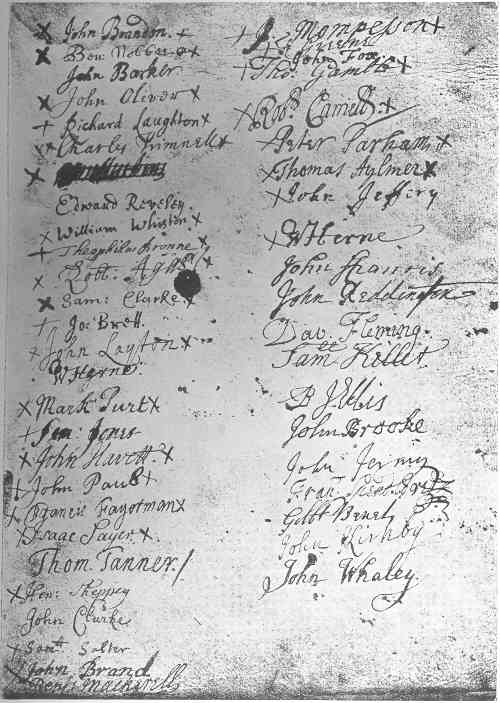 John Brandon.
Ben:
John Barker
John Oliver
Richard Laughton
Charles Trimnell
Edward Reveley.
William Whiston
Theophilus Bronne
Robt:
Sam: Clarke
Jo: Brett.
John Layton
WHerne.
Mark Purt
Jones
John Havett.
John Paul
Francis Fagotman
Isaac Sayer.
Thom. Tanner.
Hen: Sheppey
John Clarke
Saml Salter
John Brand
Denis Mackarell
J. Mompesson
John Fox
Tho: Gamble
Robt. Cannell.
Peter Parham
Thomas Aylmer
John Jeffery
WHerne
John Francis
John Reddington
Dav. Fleming.
Saml Killet
B Jellis
John Brooke
John Jermy
Fran:
John Kirkby
John Whaley.